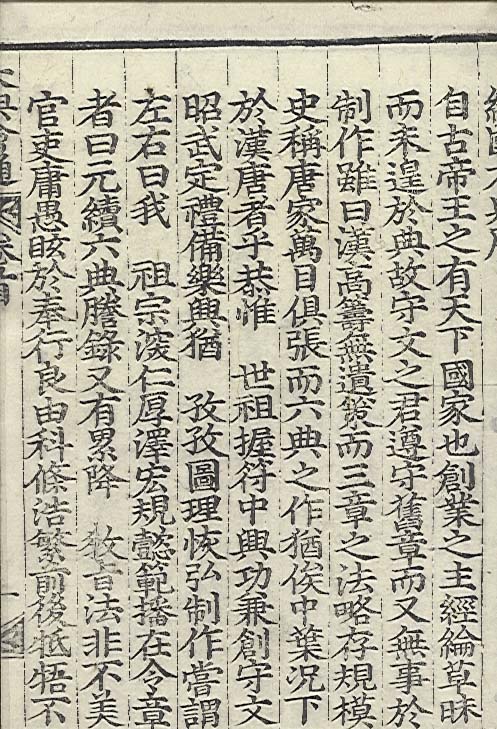 經國大典序
自古帝王之有天下國家也創業之主經綸草昧
而未遑於典故守文之君遵守舊章而又無事於
制作雖曰漢高籌無遺策而三章之法略存規模
史稱唐家萬目俱張而六典之作猶俟中葉况下
於漢唐者乎恭惟　世祖握符中興功兼創守文
昭武定禮備樂興猶　孜孜圖理恢弘制作嘗謂
左右曰我　祖宗深仁厚澤宏規懿範播在令章
者曰元續六典謄錄又有累降　敎旨法非不美
官吏庸愚眩於奉行良由科條浩繁前後牴牾不
大典會通　卷首　一